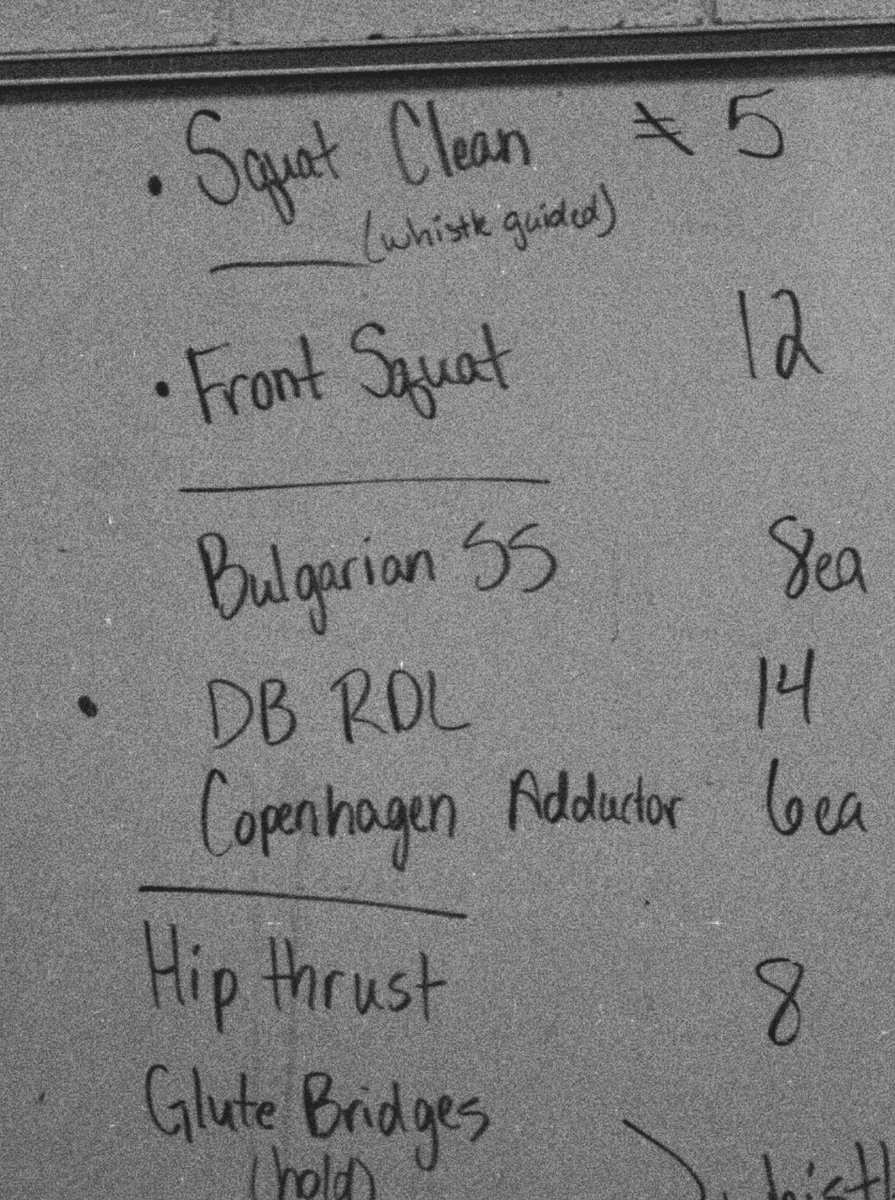 • Squat Clean ≠ 5
(whistle guided)
• Front Squat 12
Bulgarian SS 8ea
• DB RDL 14
Copenhagen Adductor 6ea
Hip thrust 8
Glute Bridges
(hold)